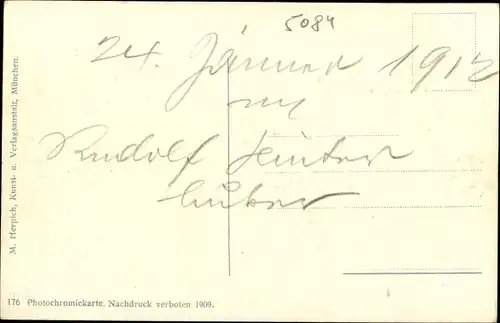 5084
24. Jänner 1912
Rudolf Hinter
huber
M. Herpich, Kunst- u. Verlagsanstalt, München.
176 Photochromiekarte. Nachdruck verboten 1909.